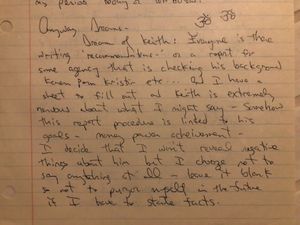 my period
Anyway, Dreams -
Dream of Keith: Everyone is there
writing "recommendations" - or a report for
some agency that is checking his background
Karen Jenn Kristin etc... And I have a
sheet to fill out and Keith is extremely
nervous about what I might say - Somehow
this report procedure is linked to his
goals - money power achievement -
I decide that I won't reveal negative
things about him but I choose not to
say anything at all - leave it blank
so not to purger myself in the future
if I have to state facts.